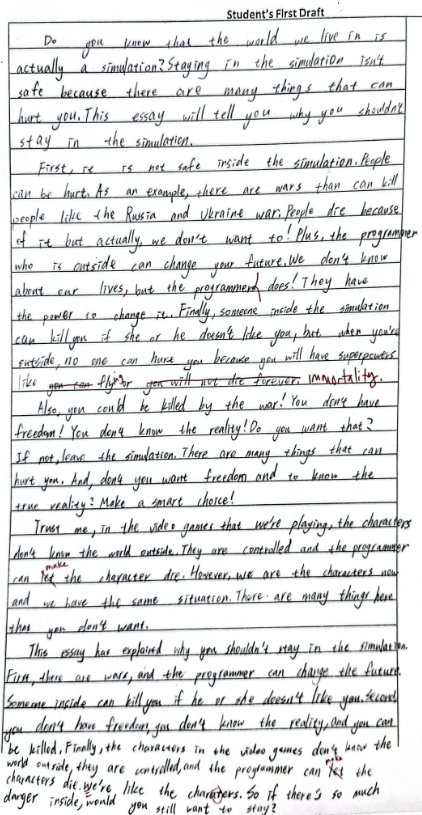 Student's First Draft
Do you know that the world we live in is
actually a simulation? Staying in the simulation isn't
safe because there are many things that can
hurt you. This essay will tell you why you shouldn't
stay in the simulation.
First, it is not safe inside the simulation. People
can be hurt. As an example, there are wars than can kill
people like the Rusia and Ukraine war. People die because
of it but actually, we don't want to! Plus, the programmer
who is outside can change your future. We don't know
about our lives, but the programmer does! They have
the power to change it. Finally, someone inside the simulation
can kill you if she or he doesn't like you, but when you're
outside, no one can hurt you because you will have superpowers
like you can flying or you will not die forever. immortality.
Also, you could be killed by the war! You don't have
freedom! You don't know the reality! Do you want that?
If not, leave the simulation. There are many things that can
hurt you. And, don't you want freedom and to know the
true reality? Make a smart choice!
Trust me, in the video games that we're playing, the characters
don't know the world outside. They are controlled and the programmer
can let make the character die. However, we are the characters now
and we have the same situation. There are many things here
that you don't want.
This essay has explained why you shouldn't stay in the simulation.
First, there are wars, and the programmer can change the future.
Someone inside can kill you if he or she doesn't like you. Second,
you don't have freedom, you don't know the reality, and you can
be killed. Finally, the characters in the video games don't know the
world outside, they are controlled, and the programmer can let make the
characters die. We're like the characters. So if there's so much
danger inside, would you still want to stay?